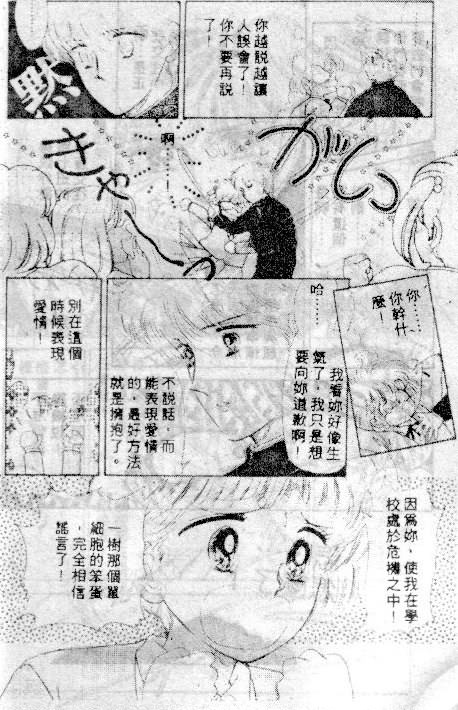 你越說越讓
人誤會了！
你不要再說
了！
默
啊………！
がしっ
きゃーっ
你……
你幹什
麼！
哈……
我看妳好像生
氣了，我只是想
要向妳道歉啊！
不說話，而
能表現愛情
的，最好方法
就是擁抱了。
別在這個
時候表現
愛情！
因為妳，使我在學
校處於危機之中！
一樹那個單
細胞的笨蛋
，完全相信
謠言了！